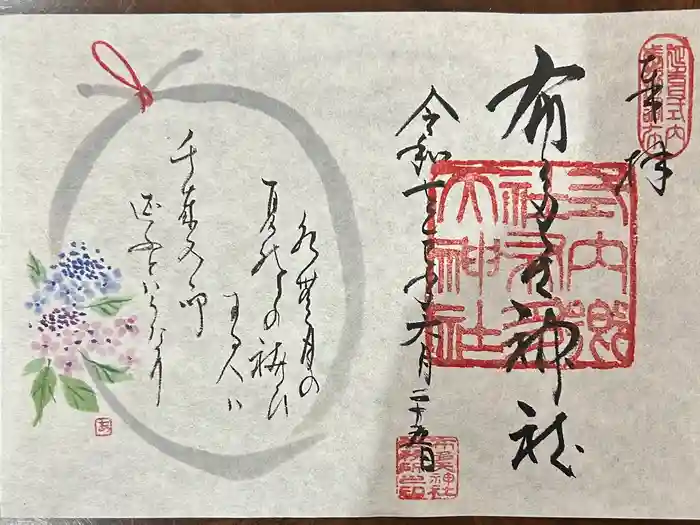 奉拝
布多天神社
式内郷社布多天神社
令和七年六月二十五日
布多天神社社務所之印
水無月の
夏越の祓ひ
する人は
千歳の命
延ふといふなり